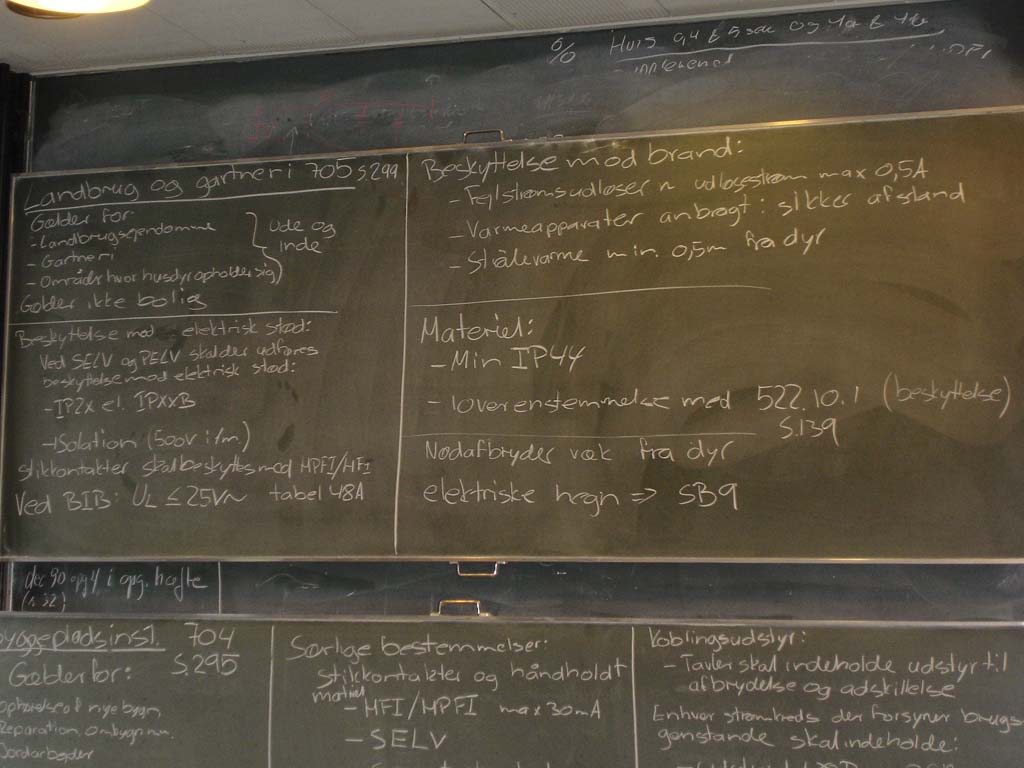 % Hus
implement
Landbrug og gartneri 705 s299
Gælder for:
- Landbrugsejendomme
- Gartneri
- Områder hvor husdyr opholder sig
ude og
inde
Gælder ikke bolig
Beskyttelse mod elektrisk stød:
Ved SELV og PELV skal der udføres
beskyttelse mod elektrisk stød:
- IP2X el. IPXXB
- Isolation (500V i 1m.)
stikkontakter skal beskyttes med HPFI/HFI
Ved BIB: UL ≤ 25V~ tabel 48A
Beskyttelse mod brand:
- Fejlstrømsudløser m udløsestrøm max 0,5A
- Varmeapparater anbragt i sikker afstand
- Strålevarme min. 0,5m fra dyr
Materiel:
- Min IP44
- I overenstemmelse med 522.10.1 (beskyttelse)
S.139
Nødafbryder væk fra dyr
elektriske hegn => SB9
dec 90 opg 4 i opg. hæfte
(s 32)
byggepladsinst. 704
S.295
Gælder for:
Opførelse af nye bygn
Reparation, ombygn
Jordarbejder
Særlige bestemmelser:
Stikkontakter og håndholdt
matriel
- HFI/HPFI max 30mA
- SELV
Koblingsudstyr:
- Tavler skal indeholde udstyr til
afbrydelse og adskillelse
Enhver strømkreds der forsyner brugs
genstande skal indeholde: